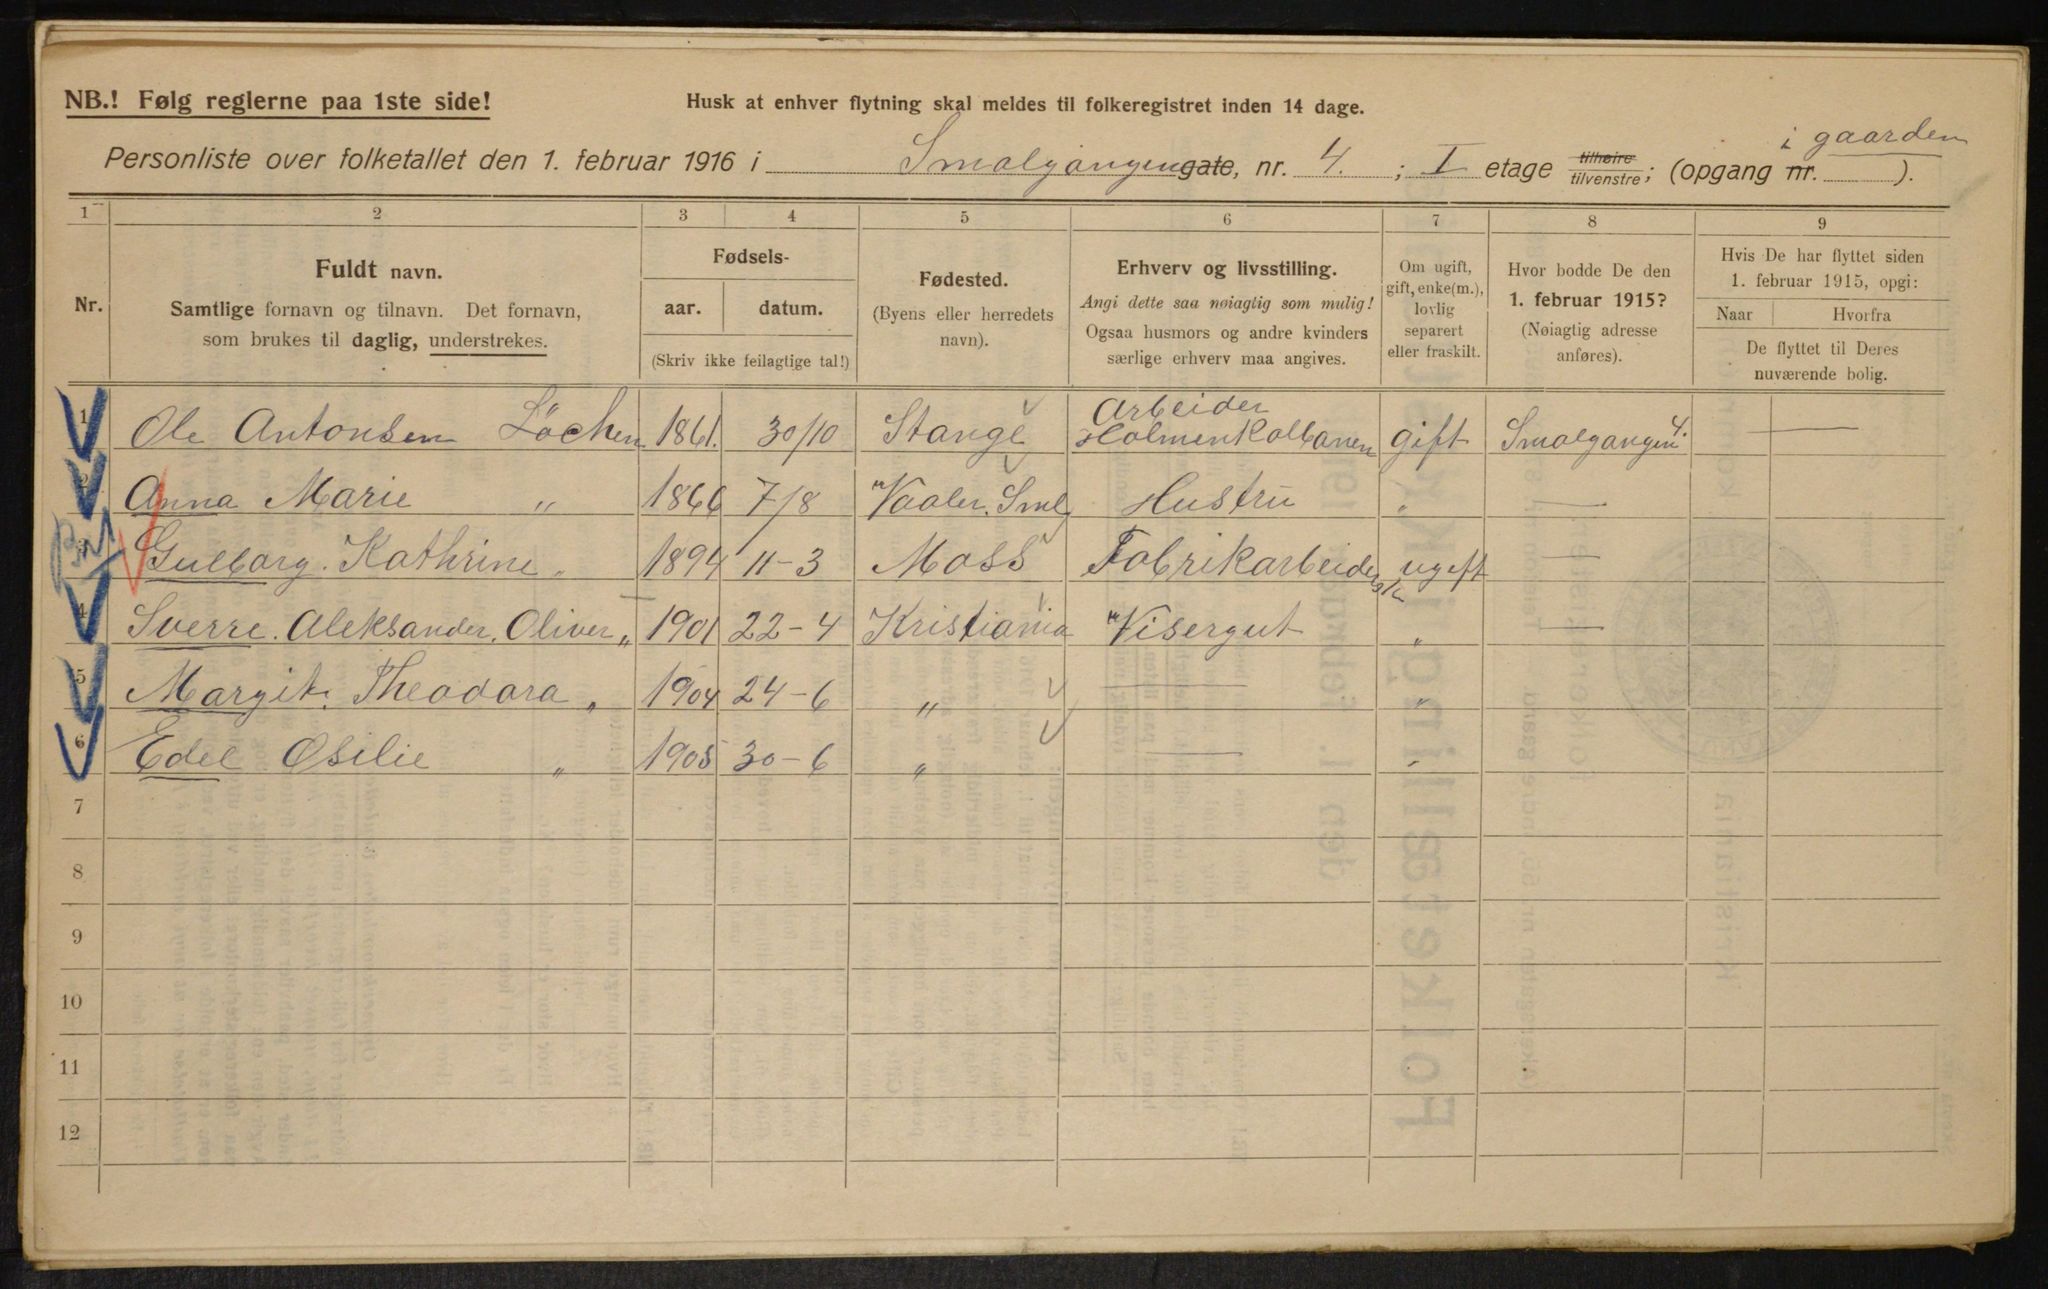 NB.! Følg reglerne paa 1ste side!
Husk at enhver flytning skal meldes til folkeregistret inden 14 dage.
i gaarden
Personliste over folketallet den 1. februar 1916 i Smalgangengate, nr. 4. ; I etage tilhøire tilvenstre; (opgang nr. ).
1 2 3 4 5 6 7 8 9
Nr.
Fuldt navn.
Samtlige fornavn og tilnavn. Det fornavn,
som brukes til daglig, understrekes.
Fødsels-
aar. datum.
(Skriv ikke feilagtige tal!)
Fødested.
(Byens eller herredets
navn).
Erhverv og livsstilling.
Angi dette saa nøiagtig som mulig!
Ogsaa husmors og andre kvinders
særlige erhverv maa angives.
Om ugift,
gift, enke(m.),
lovlig
separert
eller fraskilt.
Hvor bodde De den
1. februar 1915?
(Nøiagtig adresse
anføres).
Hvis De har flyttet siden
1. februar 1915, opgi:
Naar Hvorfra
De flyttet til Deres
nuværende bolig.
1 Ole Antonsen Löchen 1861. 30/10 Stange Arbeider Holmenkolbanen gift Smalgangen 4. —
2 Anna Marie " 1866 7/8 Vaaler. Sml Hustru " —
3 Gulborg. Kathrine " 1894 11-3 Moss Fabrikarbeiderske ugift —
4 Sverre. Aleksander. Oliver " 1901 22-4 Kristiania Visergut " —
5 Margit. Theodora " 1904 24-6 " — "
6 Edel Osilie " 1905 30-6 " — "
7
8
9
10
11
12